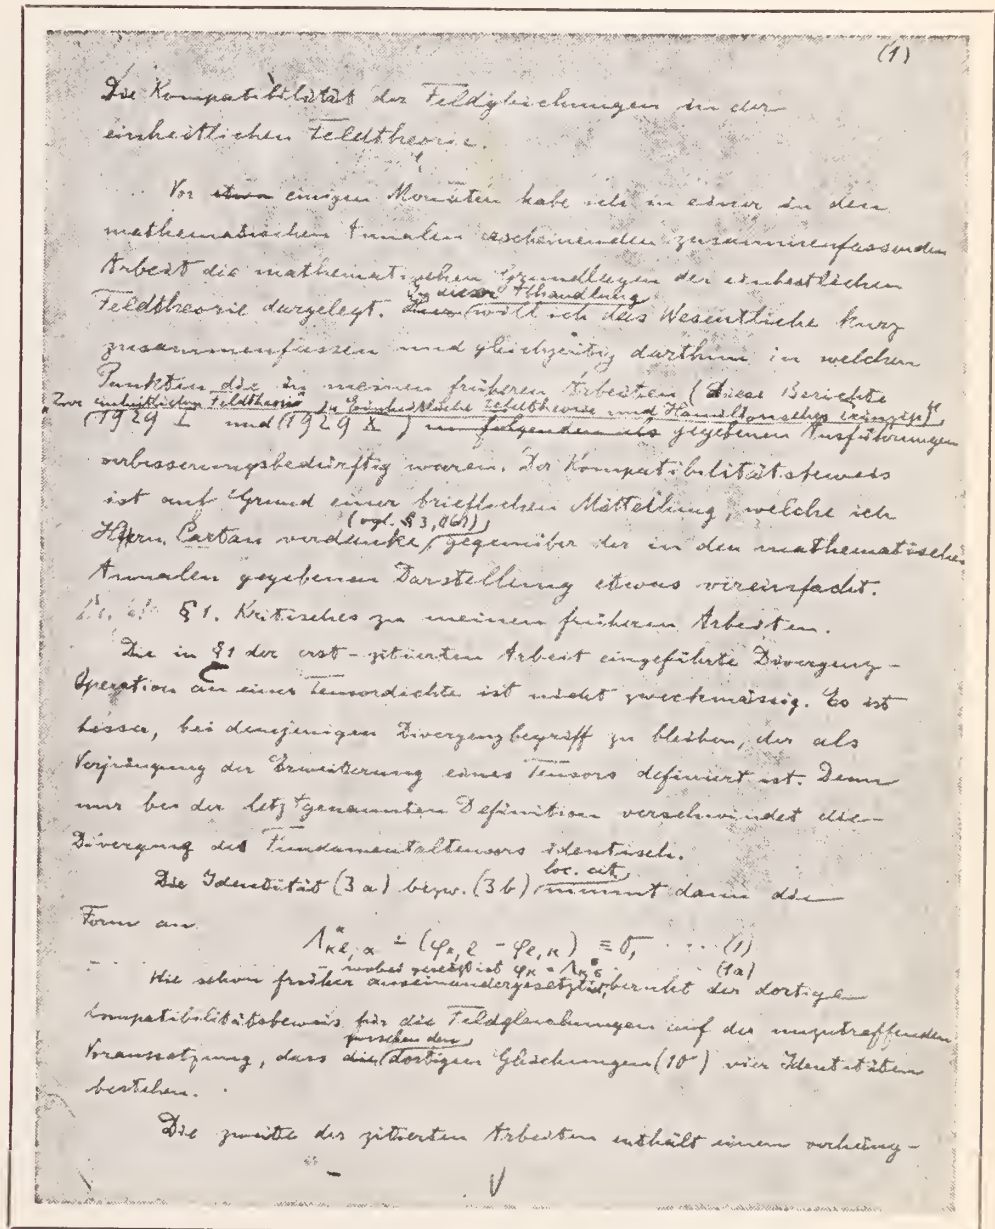 (1)
Die Kompatibilität der Feldgleichungen in der
einheitlichen Feldtheorie.
Vor etwa einigen Monaten habe ich in einer in den
mathematischen Annalen erscheinenden zusammenfassenden
Arbeit die mathematischen Grundlagen der einheitlichen
In dieser Abhandlung
Feldtheorie dargelegt. will ich das Wesentliche kurz
zusammenfassen und gleichzeitig darthun in welchen
Punkten die in meinen früheren Arbeiten (diese Berichte
"Zur einheitlichen Feldtheorie" u. "Einheitliche Feldtheorie und Hamiltonsches Prinzip"
(1929 I und (1929 X) im folgenden als gegebenen Ausführungen
verbesserungsbedürftig waren. Der Kompatibilitätsbeweis
ist auf Grund einer brieflichen Mitteilung, welche ich
(vgl. § 3,
Herrn Cartan verdanke, gegenüber der in den mathematischen
Annalen gegebenen Darstellung etwas vereinfacht.
§ 1. Kritisches zu meinen früheren Arbeiten.
Die in § 1 der erst-zitierten Arbeit eingeführte Divergenz-
Operation an einer Tensordichte ist nicht zweckmässig. Es ist
besser, bei demjenigen Divergenzbegriff zu bleiben, der als
Verjüngung der Erweiterung eines Tensors definiert ist. Denn
nur bei der letztgenannten Definition verschwindet die
Divergenz des Fundamentaltensors identisch.
loc. cit.
Die Identität (3a) bezw. (3b) nimmt dann die
Form an
Λ^α_{κl;α} - (φ_{κ,l} - φ_{l,κ}) ≡ 0, ... (1)
wobei gesetzt ist φ_κ = Λ^σ_{κσ} (1a)
Wie schon früher auseinandergesetzt beruht der dortige
Kompatibilitätsbeweis für die Feldgleichungen auf der unzutreffenden
zwischen den
Voraussetzung, dass die dortigen Gleichungen (10) vier Identitäten
bestehen.
Die zweite der zitierten Arbeiten enthält einen verhäng-